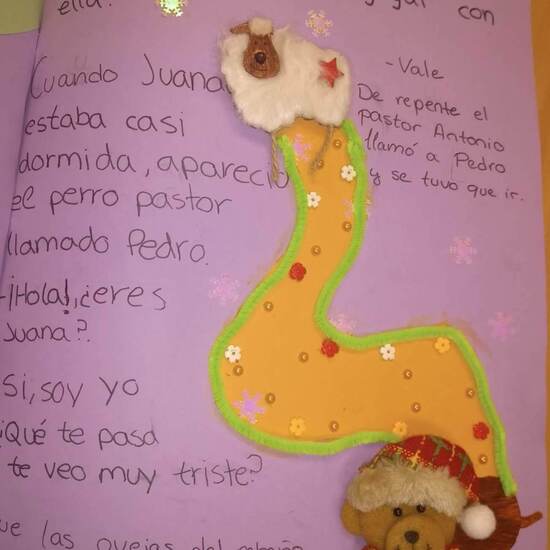 ella!
con
Cuando Juana
estaba casi
dormida, apareció
el perro pastor
llamado Pedro.
-¡Hola!, ¿eres
Juana?.
Si, soy yo
¿Qué te pasa
te veo muy triste?
las ovejas del
-Vale
De repente el
pastor Antonio
llamó a Pedro
y se tuvo que ir.